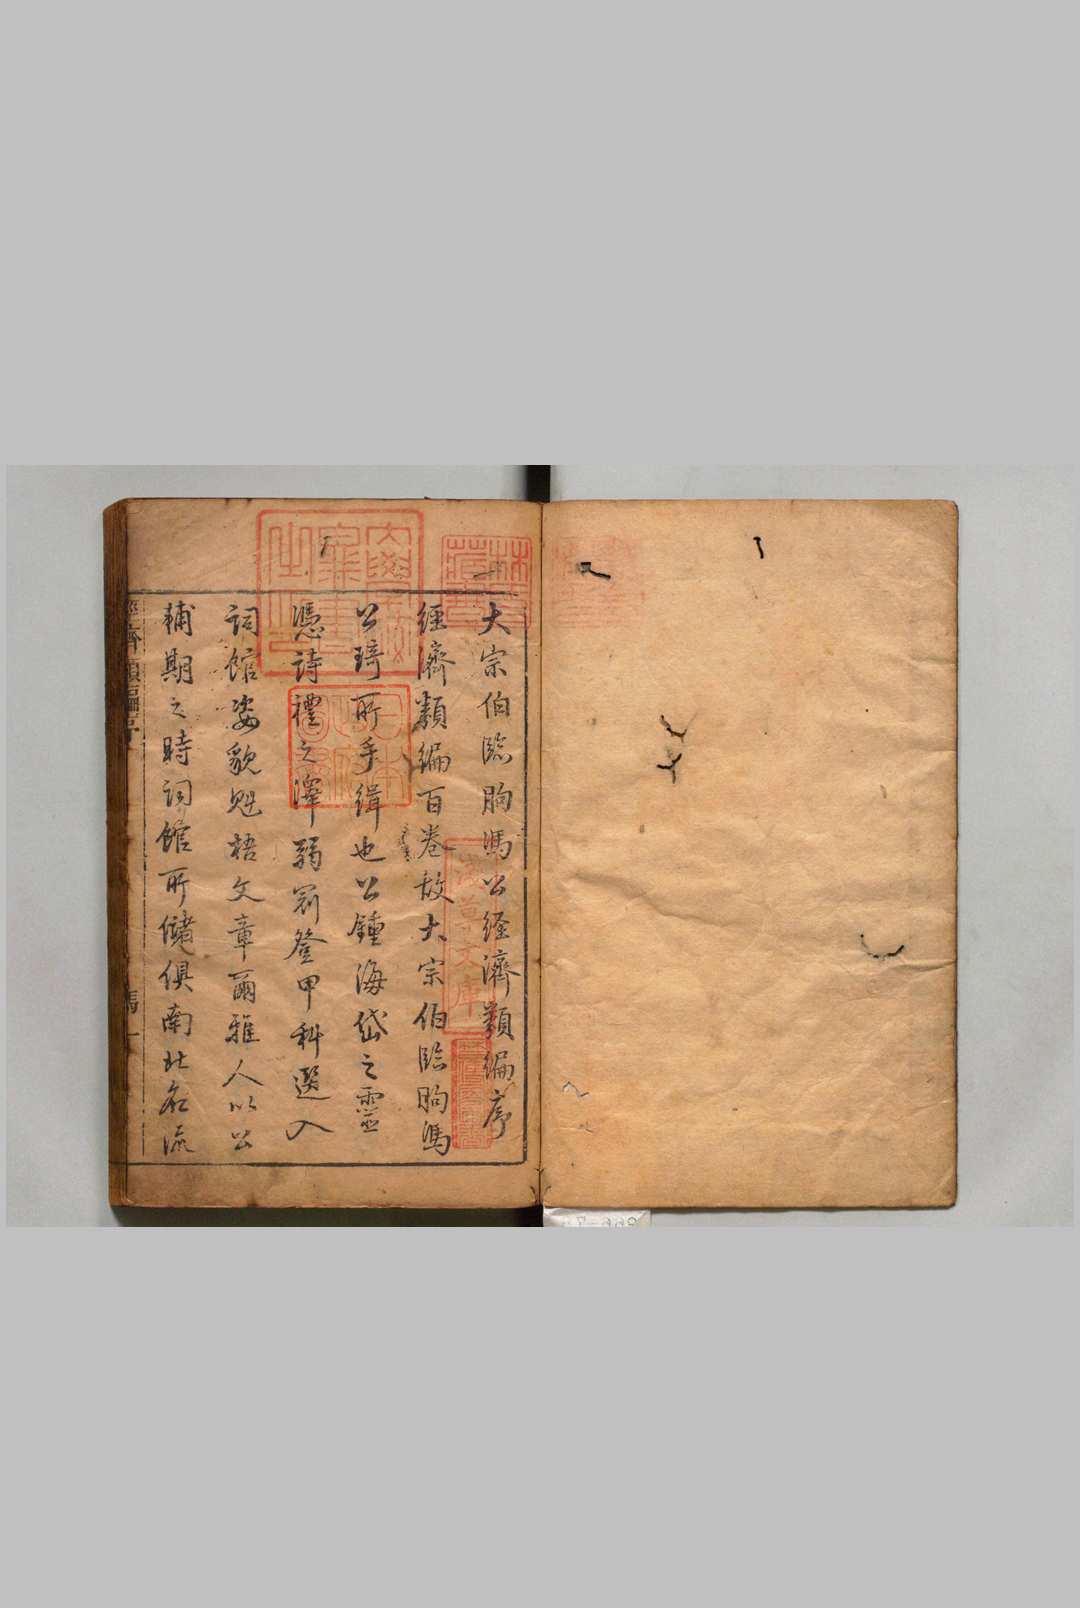 大宗伯臨朐馮公經濟類編序
經濟類編百卷故大宗伯臨朐馮
公琦所手緝也公鍾海岱之靈
憑詩禮之澤弱冠登甲科選入
詞館姿貌魁梧文章爾雅人以公
輔期之時詞館所儲俱南北名流
經濟類編序
馮
一
林氏藏書
淺草文庫
日本政府圖書